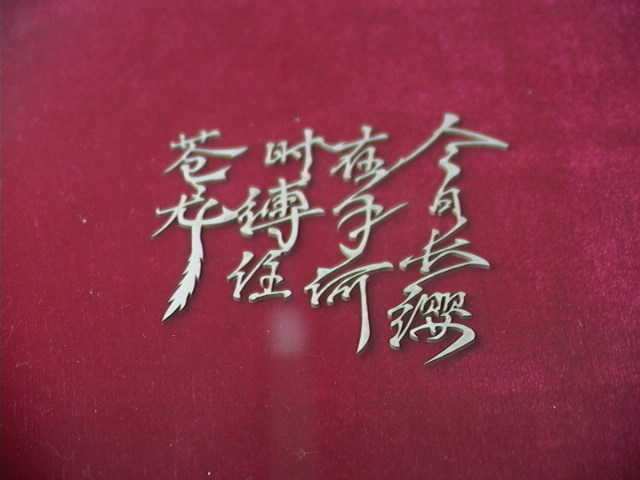 今日长缨
在手何
时缚住
苍龙